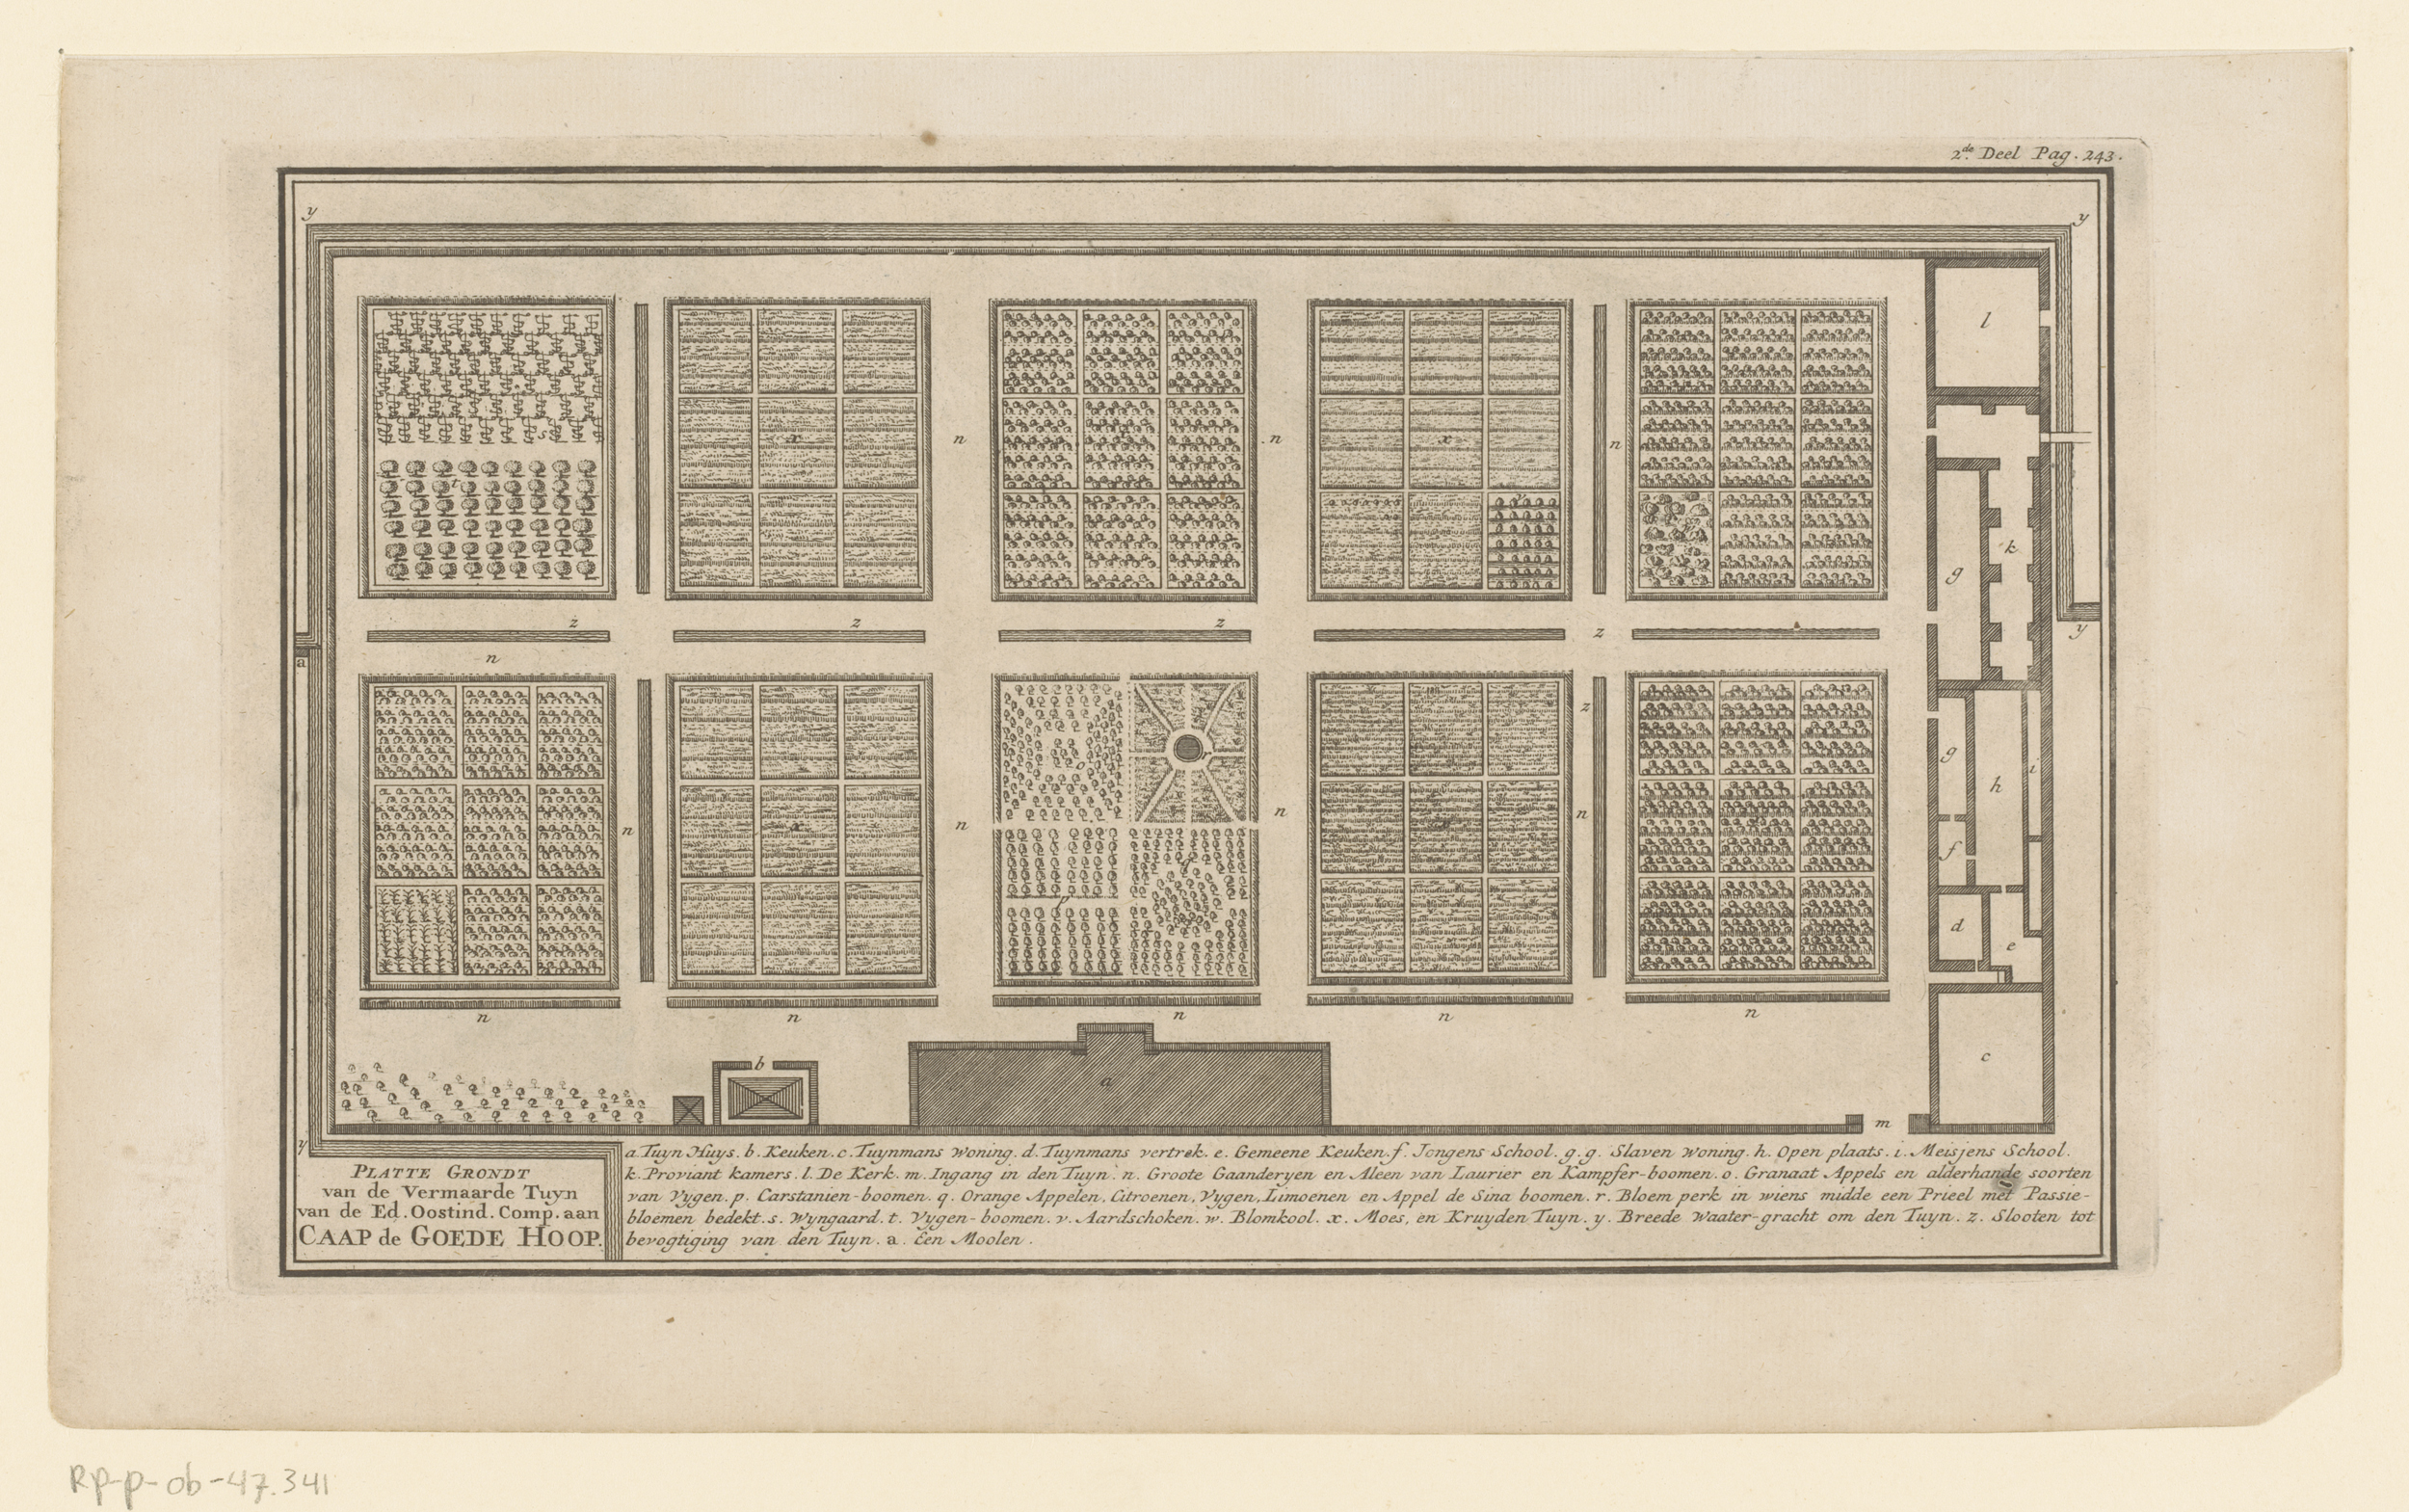 2de. Deel Pag. 243.
y
y
l
n
x
n
x
n
k
g
z
z
z
z
y
a
n
z
g
h
i
n
x
n
r
o
n
n
f
p
d
e
n
n
n
n
n
b
a
c
m
y
PLATTE GRONDT
van de Vermaarde Tuyn
van de Ed. Oostind. Comp. aan
CAAP de GOEDE HOOP.
a. Tuyn Huys. b. Keuken. c. Tuynmans Woning. d. Tuynmans vertrek. e. Gemeene Keuken. f. Jongens School. g. g. Slaven Woning. h. Open plaats. i. Meisjens School.
k. Proviant kamers. l. De Kerk. m. Ingang in den Tuyn. n. Groote Gaanderyen en Aleen van Laurier en Kampfer-boomen. o. Granaat Appels en alderhande soorten
van Vygen. p. Carstanien-boomen. q. Orange Appelen, Citroenen, Vygen, Limoenen en Appel de Sina boomen. r. Bloem perk in wiens midde een Prieel met Passie-
bloemen bedekt. s. Wyngaard. t. Vygen-boomen. v. Aardschoken. w. Blomkool. x. Moes, en Kruyden Tuyn. y. Breede Waater-gracht om den Tuyn. z. Slooten tot
bevogtiging van den Tuyn. a. Een Moolen.
Rp-p-ob-47.341